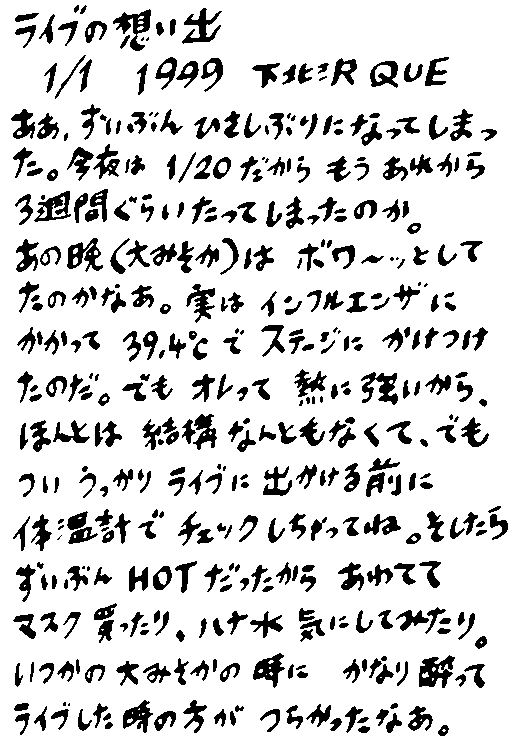 ライブの想い出
1/1 1999 下北沢 QUE
ああ、ずいぶん ひさしぶりになってしまっ
た。今夜は 1/20 だから もう あれから
3週間ぐらいたってしまったのか。
あの晩（大みそか）は ボワ〜ッとして
たのかなあ。実は インフルエンザに
かかって 39.4℃ で ステージに かけつけ
たのだ。でも オレって 熱に強いから、
ほんとは 結構 なんともなくて、でも
つい うっかり ライブに 出かける前に
体温計で チェックしちゃってね。そしたら
ずいぶん HOT だったから あわてて
マスク 買ったり、ハナ水 気にしてみたり。
いつかの 大みそかの 時に かなり 酔って
ライブした 時の方が つらかったなあ。